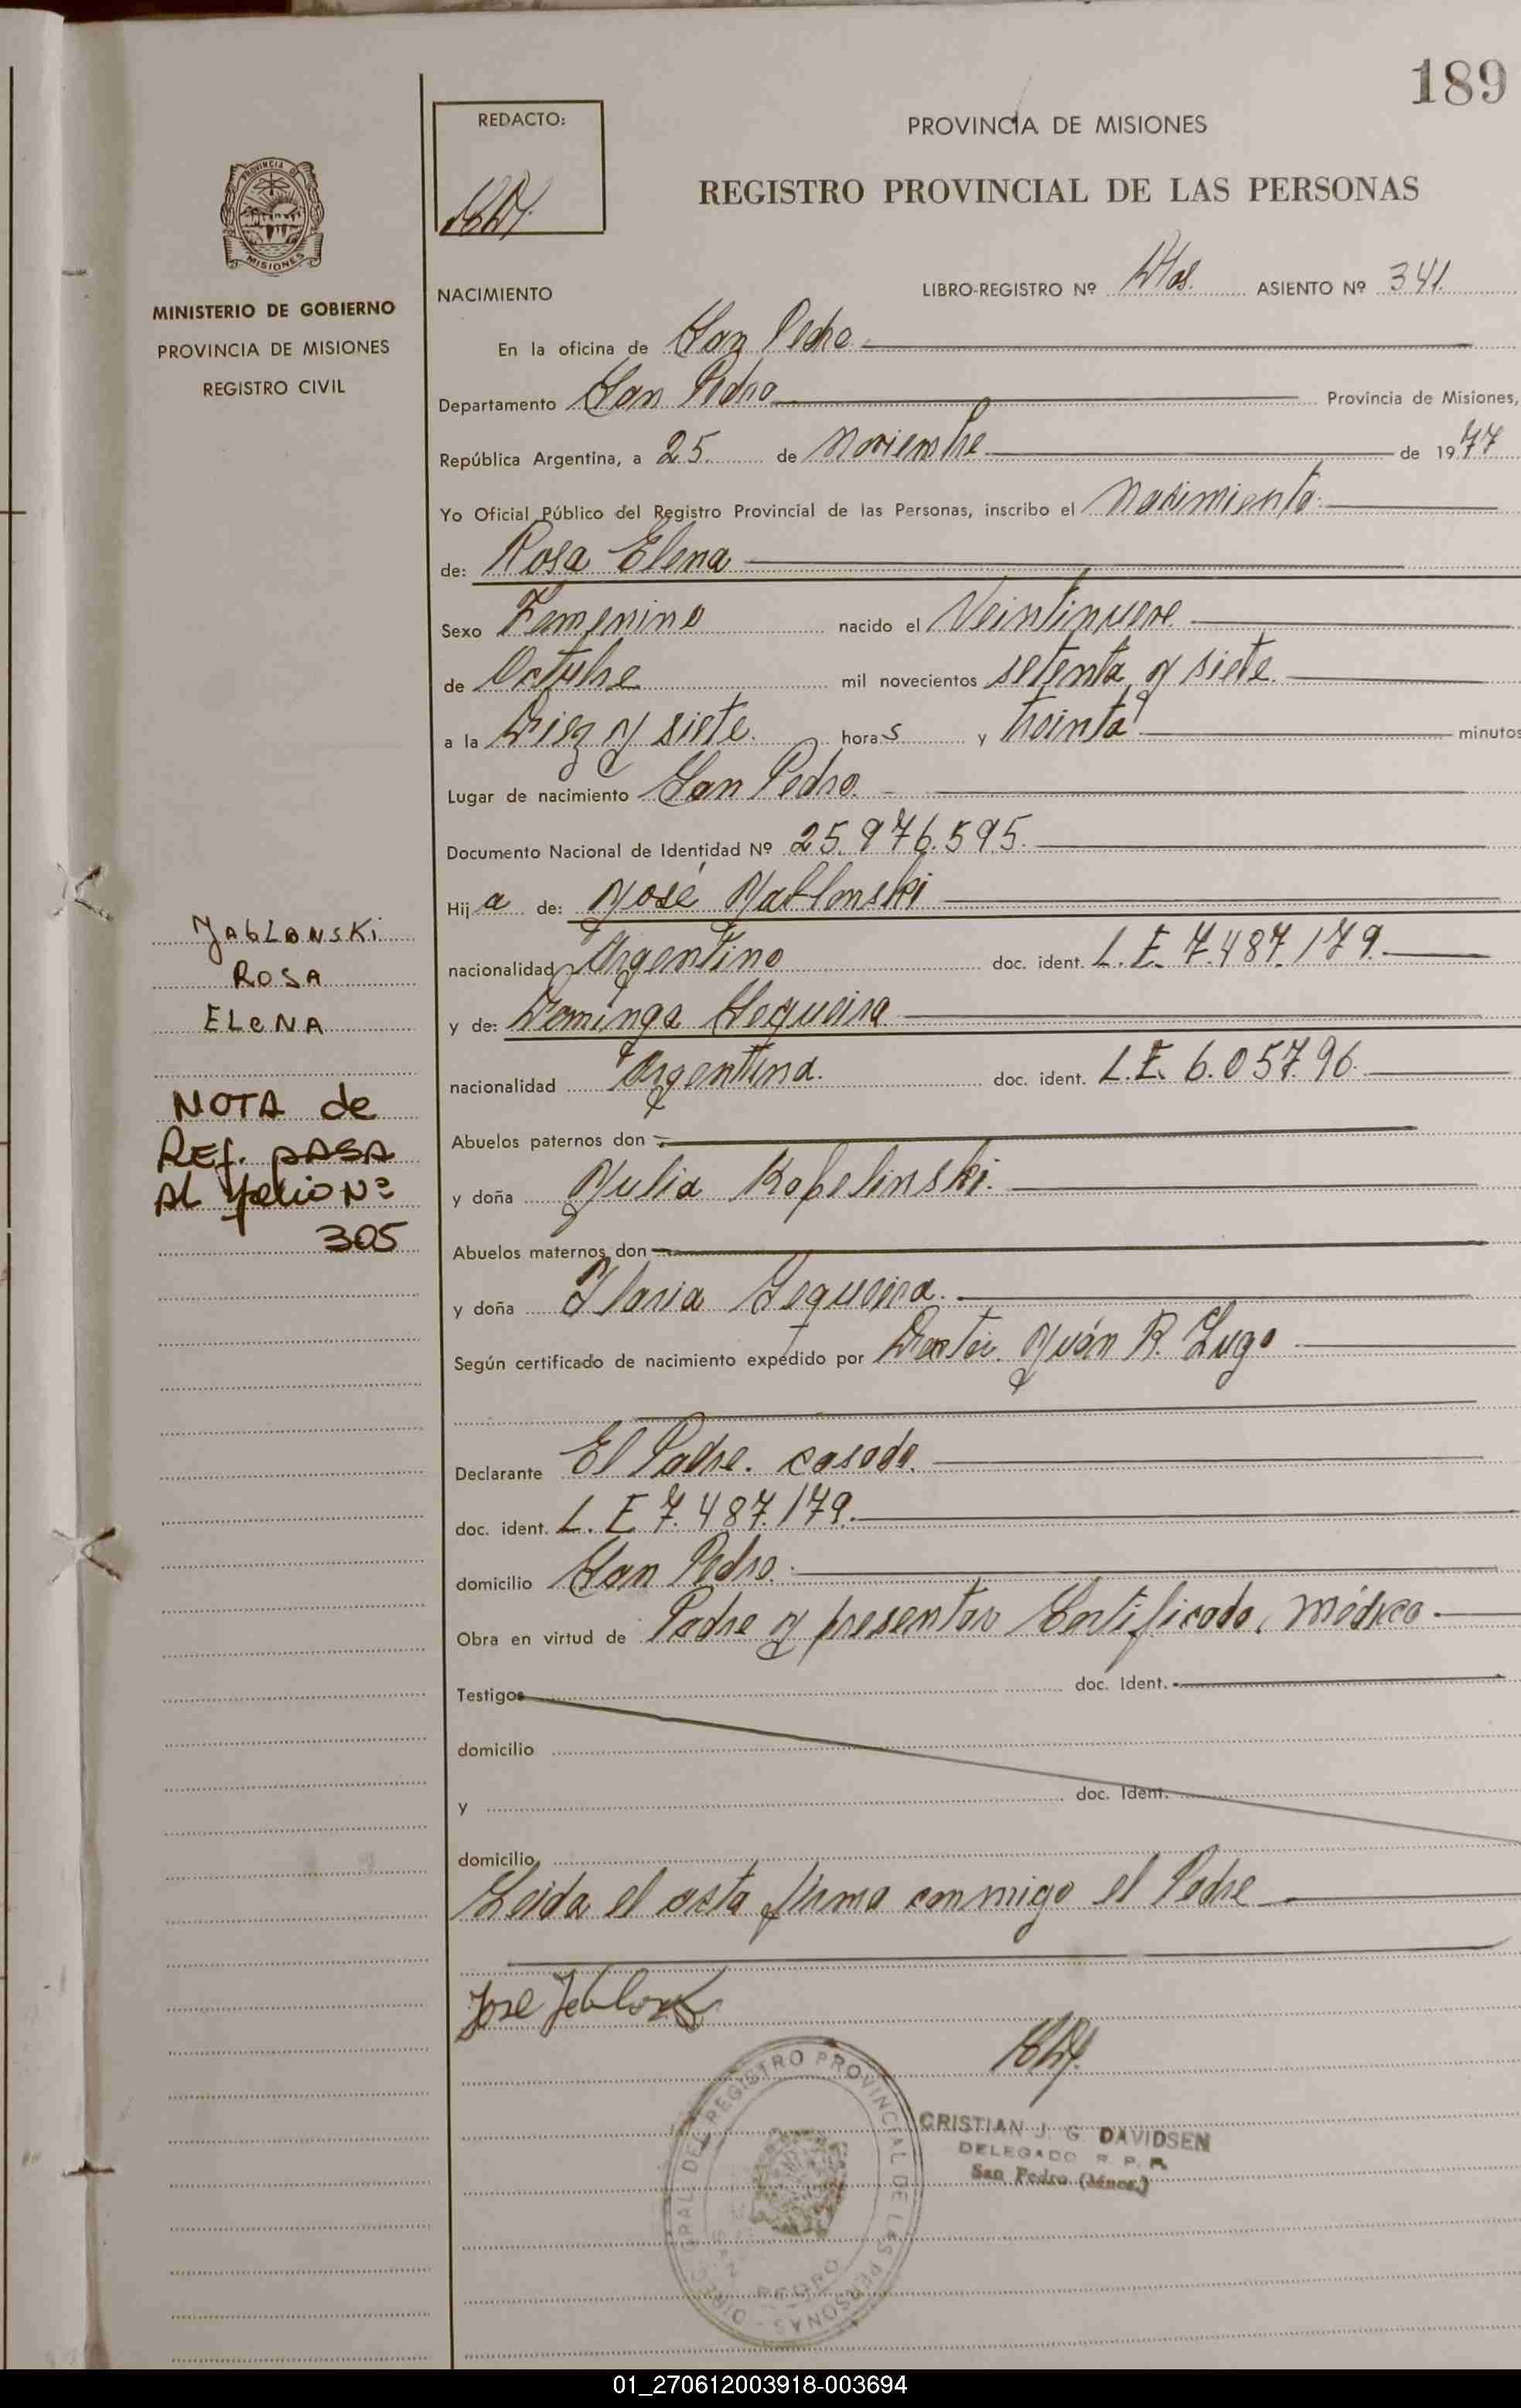 189
REDACTO:
PROVINCIA DE MISIONES
REGISTRO PROVINCIAL DE LAS PERSONAS
PROVINCIA DE
MISIONES
MINISTERIO DE GOBIERNO
PROVINCIA DE MISIONES
REGISTRO CIVIL
NACIMIENTO
LIBRO-REGISTRO Nº ASIENTO Nº 341
En la oficina de San Pedro
Departamento San Pedro Provincia de Misiones,
República Argentina, a 25 de Noviembre de 1977
Yo Oficial Público del Registro Provincial de las Personas, inscribo el Nacimiento
de: Rosa Elena
Sexo Femenino nacido el Veintinueve
de Octubre mil novecientos setenta y siete
a la Diez y siete horas y treinta minutos
Lugar de nacimiento San Pedro
Documento Nacional de Identidad Nº 25.976.595
Hija de: José Yablonski
nacionalidad Argentino doc. ident. L.E. 7.487.179
y de: Dominga Sequeira
nacionalidad Argentina. doc. ident. L.E. 6.057.96
Abuelos paternos don
y doña Julia Kopelinski.
Abuelos maternos don
y doña Ilaria Sequeira.
Según certificado de nacimiento expedido por Doctor Juán R. Lugo
Declarante El Padre. casado.
doc. ident. L.E 7.487.179.
domicilio San Pedro.
Obra en virtud de Padre y presentar Certificado, médico
Testigos doc. Ident.
domicilio
y doc. Ident.
domicilio
Leida el acta firma conmigo el Padre
JABLONSKi
ROSA
ELeNA
NOTA de
REf. pASA
AL folio Nº
305
Jose
DIREC. GRAL. DEL REGISTRO PROVINCIAL DE LAS PERSONAS
SAN PEDRO
CRISTIAN J. G. DAVIDSEN
DELEGADO R. P. P.
San Pedro (Mnes.)
01_270612003918-003694